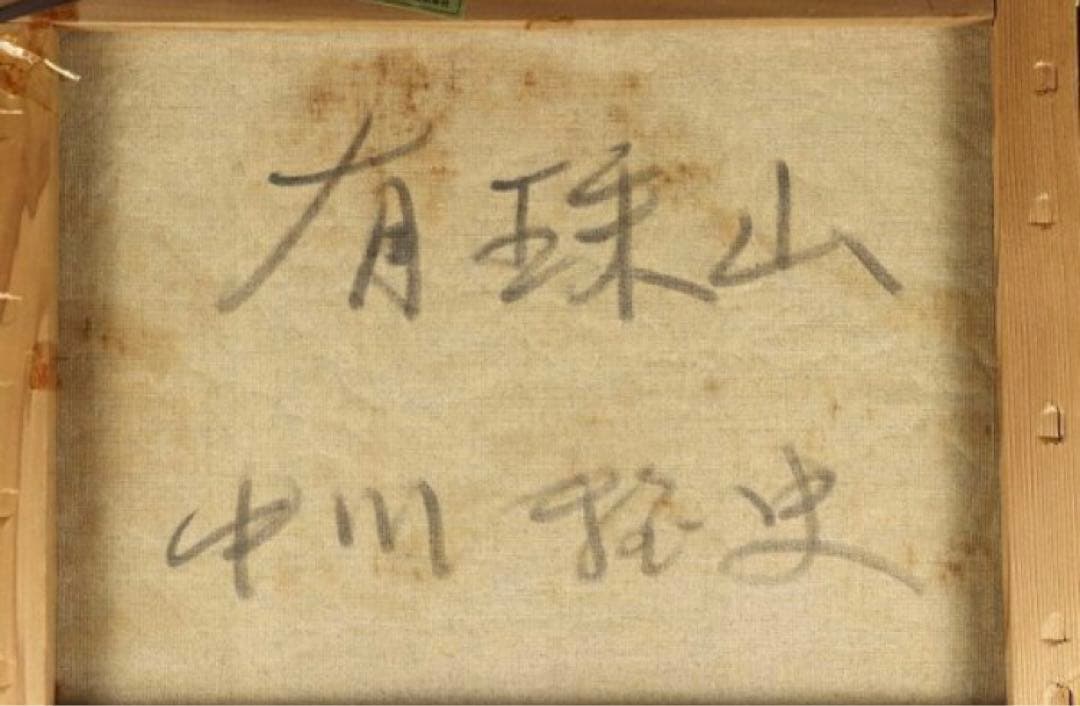 有珠山
中川 雅史